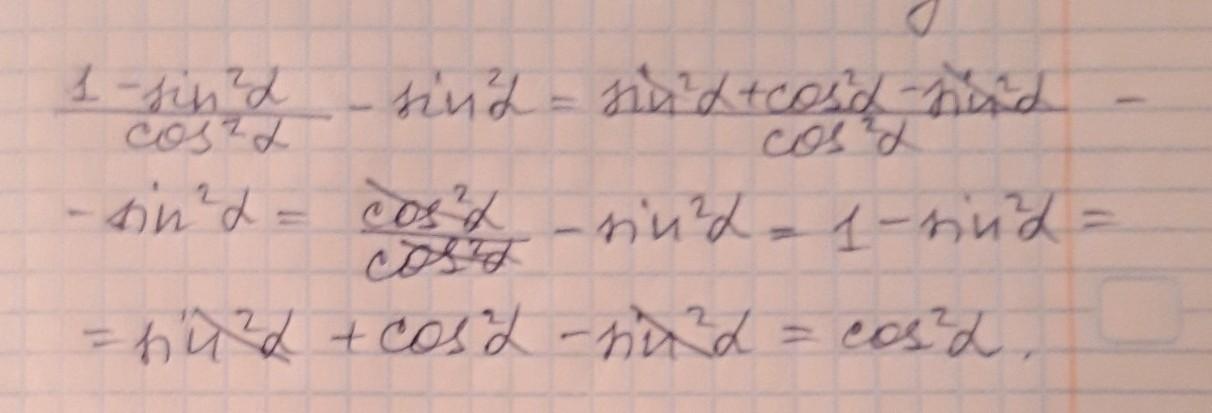 (1 - sin²α)/(cos²α) - sin²α = (sin²α + cos²α - sin²α)/(cos²α) -
- sin²α = (cos²α)/(cos²α) - sin²α = 1 - sin²α =
= sin²α + cos²α - sin²α = cos²α.